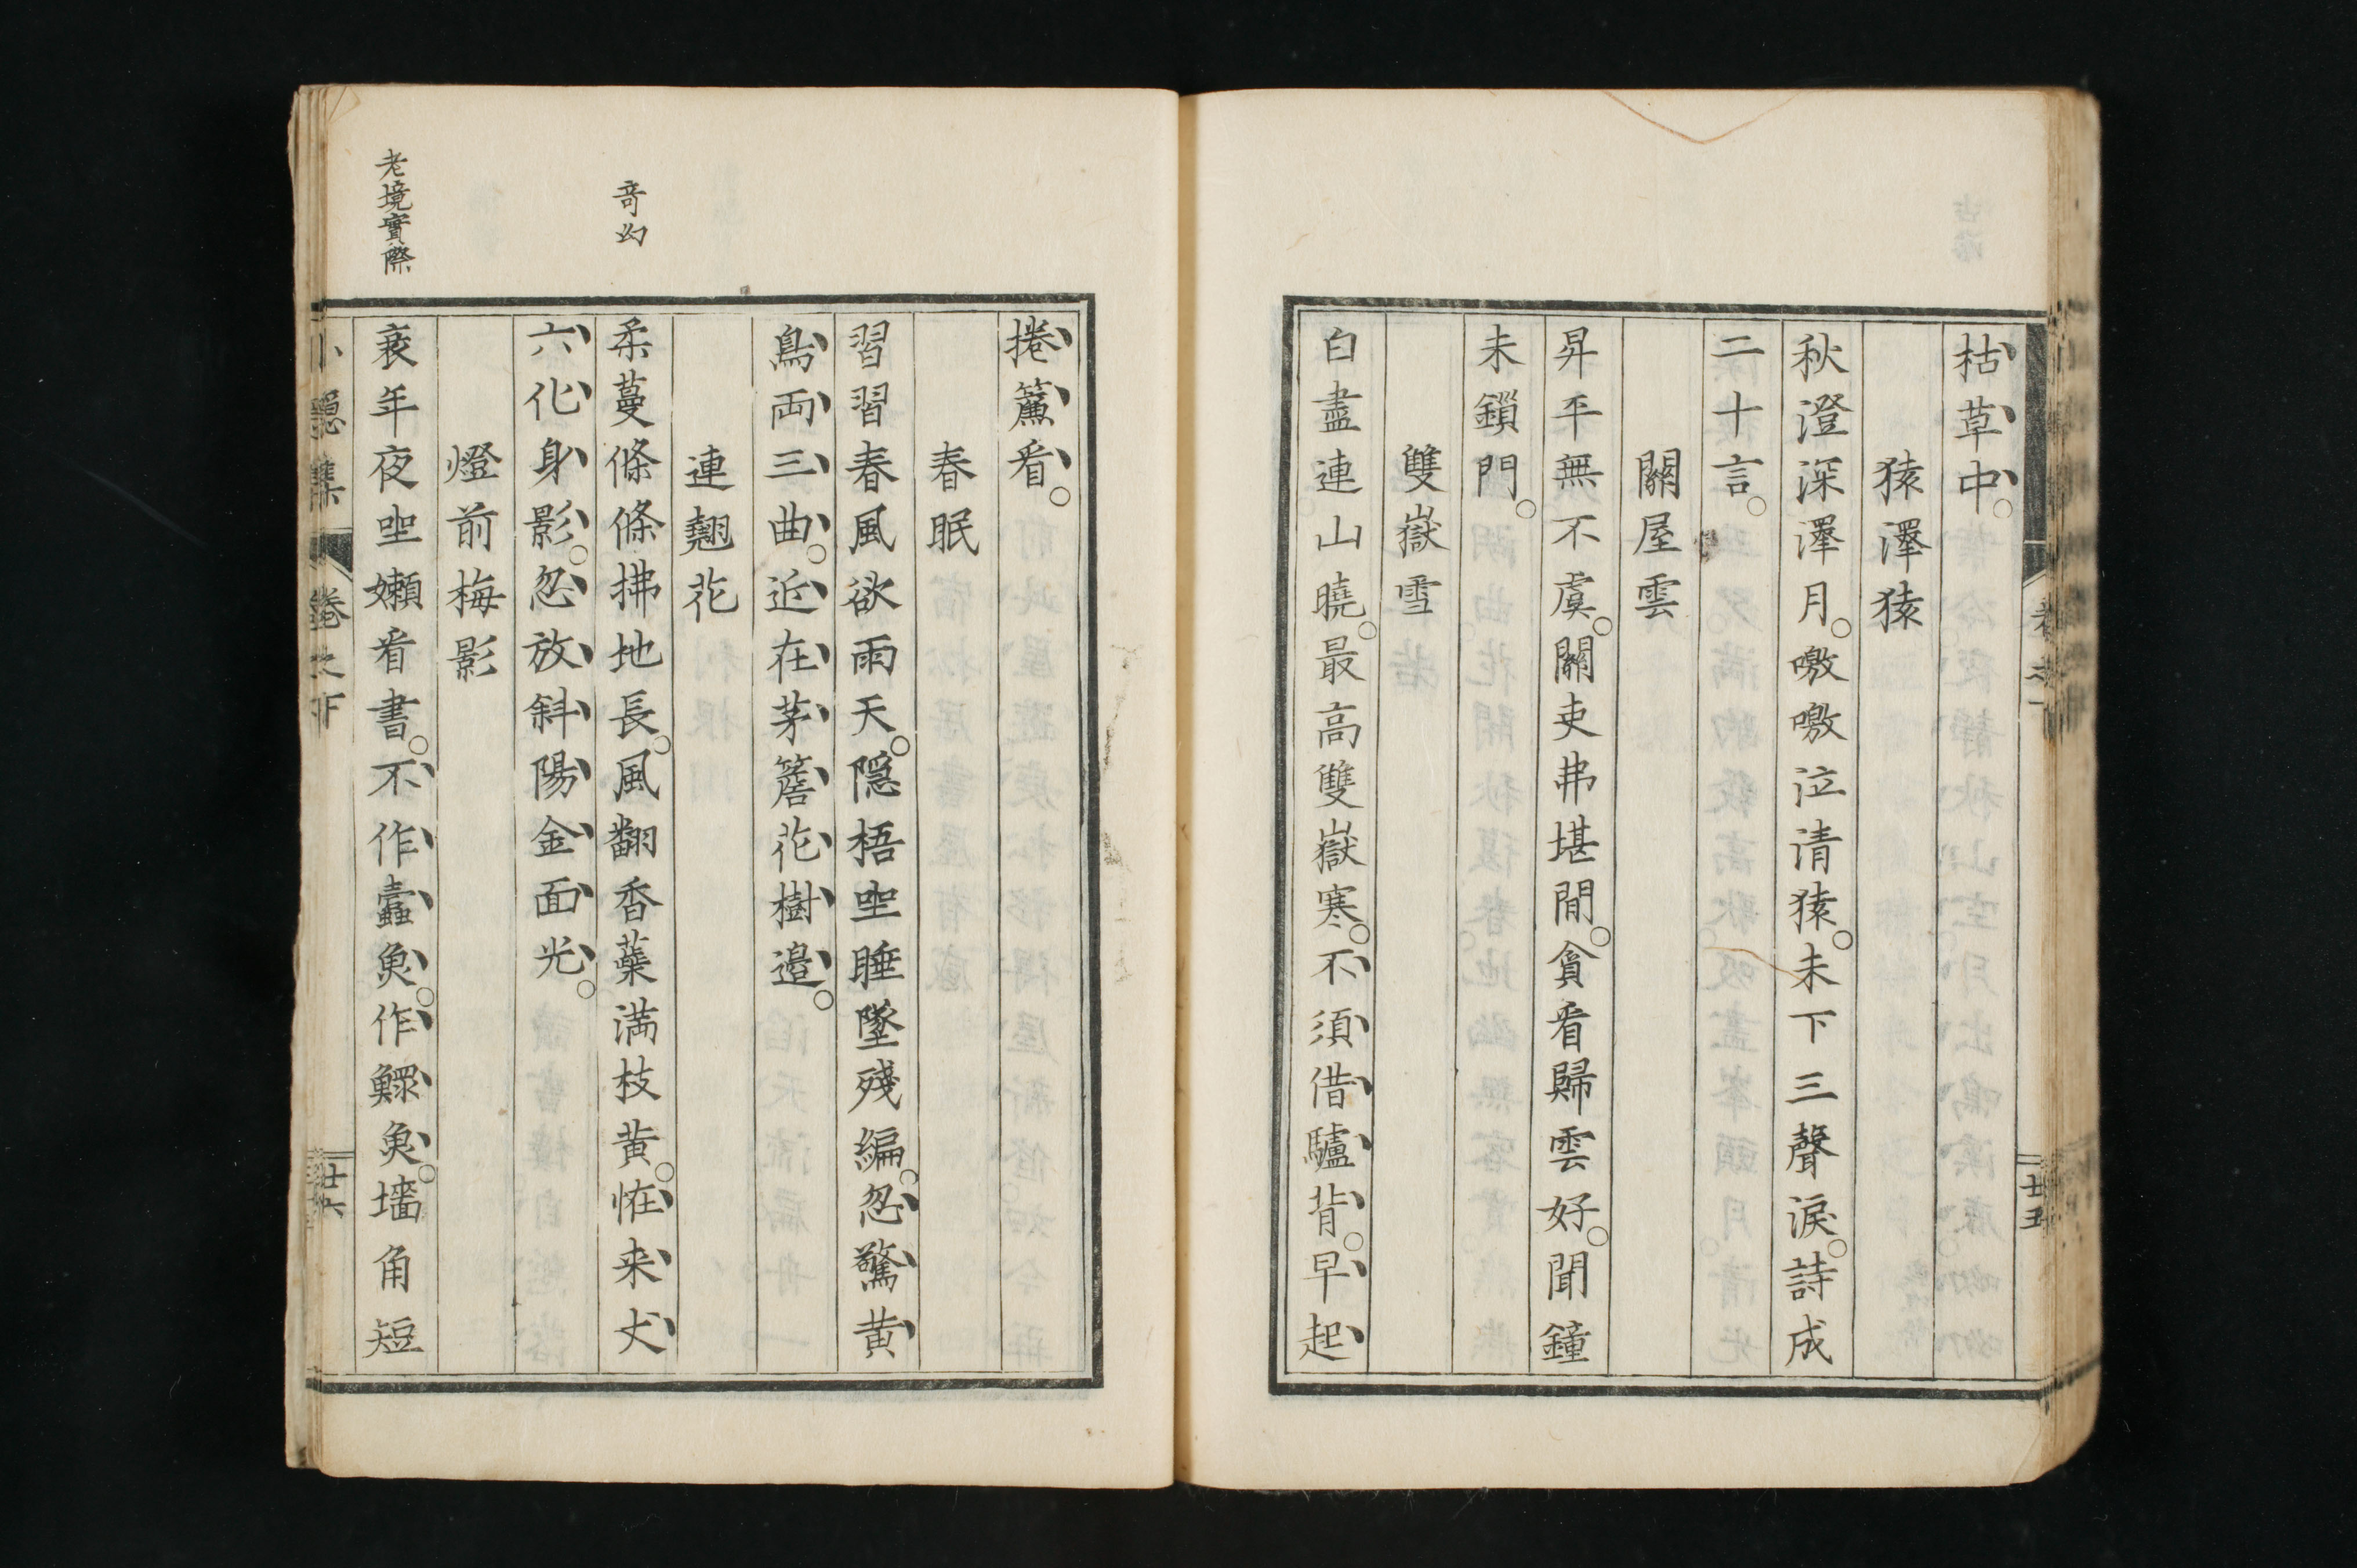 枯草中。
猿澤猿
秋澄深澤月。噭噭泣清猿。未下三聲淚。詩成
二十言。
關屋雲
昇平無不虞。關吏弗堪閒。貪看歸雲好。聞鐘
未鎖門。
雙嶽雪
白盡連山曉。最高雙嶽寒。不須借驢背。早起
廿五
捲簾看。
春眠
習習春風欲雨天。隠梧坐睡墜殘編。忽驚黄
鳥両三曲。近在茅簷花樹邉。
奇幻
連翹花
柔蔓條條拂地長。風翻香蘂満枝黄。恠来丈
六化身影。忽放斜陽金面光。
燈前梅影
老境實際
衰年夜坐嬾看書。不作蠹魚。作鰥魚。墻角短
小隠集
卷之下
廿六